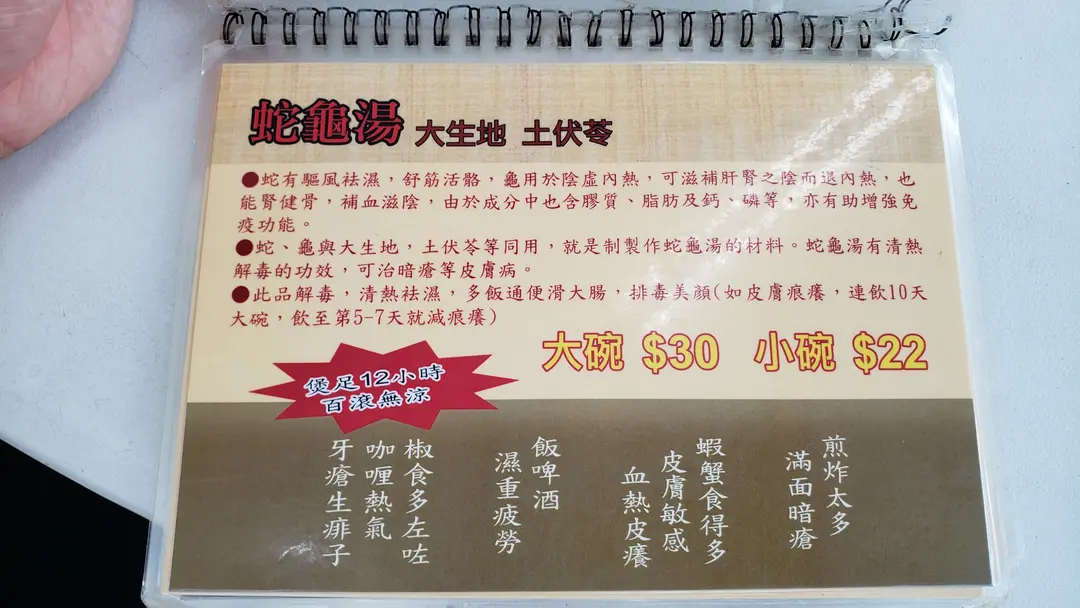 蛇龜湯 大生地 土伏苓
●蛇有驅風袪濕，舒筋活骼，龜用於陰虛內熱，可滋補肝腎之陰而退內熱，也
能腎健骨，補血滋陰，由於成分中也含膠質、脂肪及鈣、磷等，亦有助增強免
疫功能。
●蛇、龜與大生地，土伏苓等同用，就是制製作蛇龜湯的材料。蛇龜湯有清熱
解毒的功效，可治暗瘡等皮膚病。
●此品解毒，清熱袪濕，多飯通便滑大腸，排毒美顏(如皮膚痕癢，連飲10天
大碗，飲至第5-7天就減痕癢)
大碗 $30 小碗 $22
煲足12小時
百滾無涼
煎炸太多
滿面暗瘡
蝦蟹食得多
皮膚敏感
血熱皮癢
飯啤酒
濕重疲勞
椒食多左咗
咖喱熱氣
牙瘡生痱子